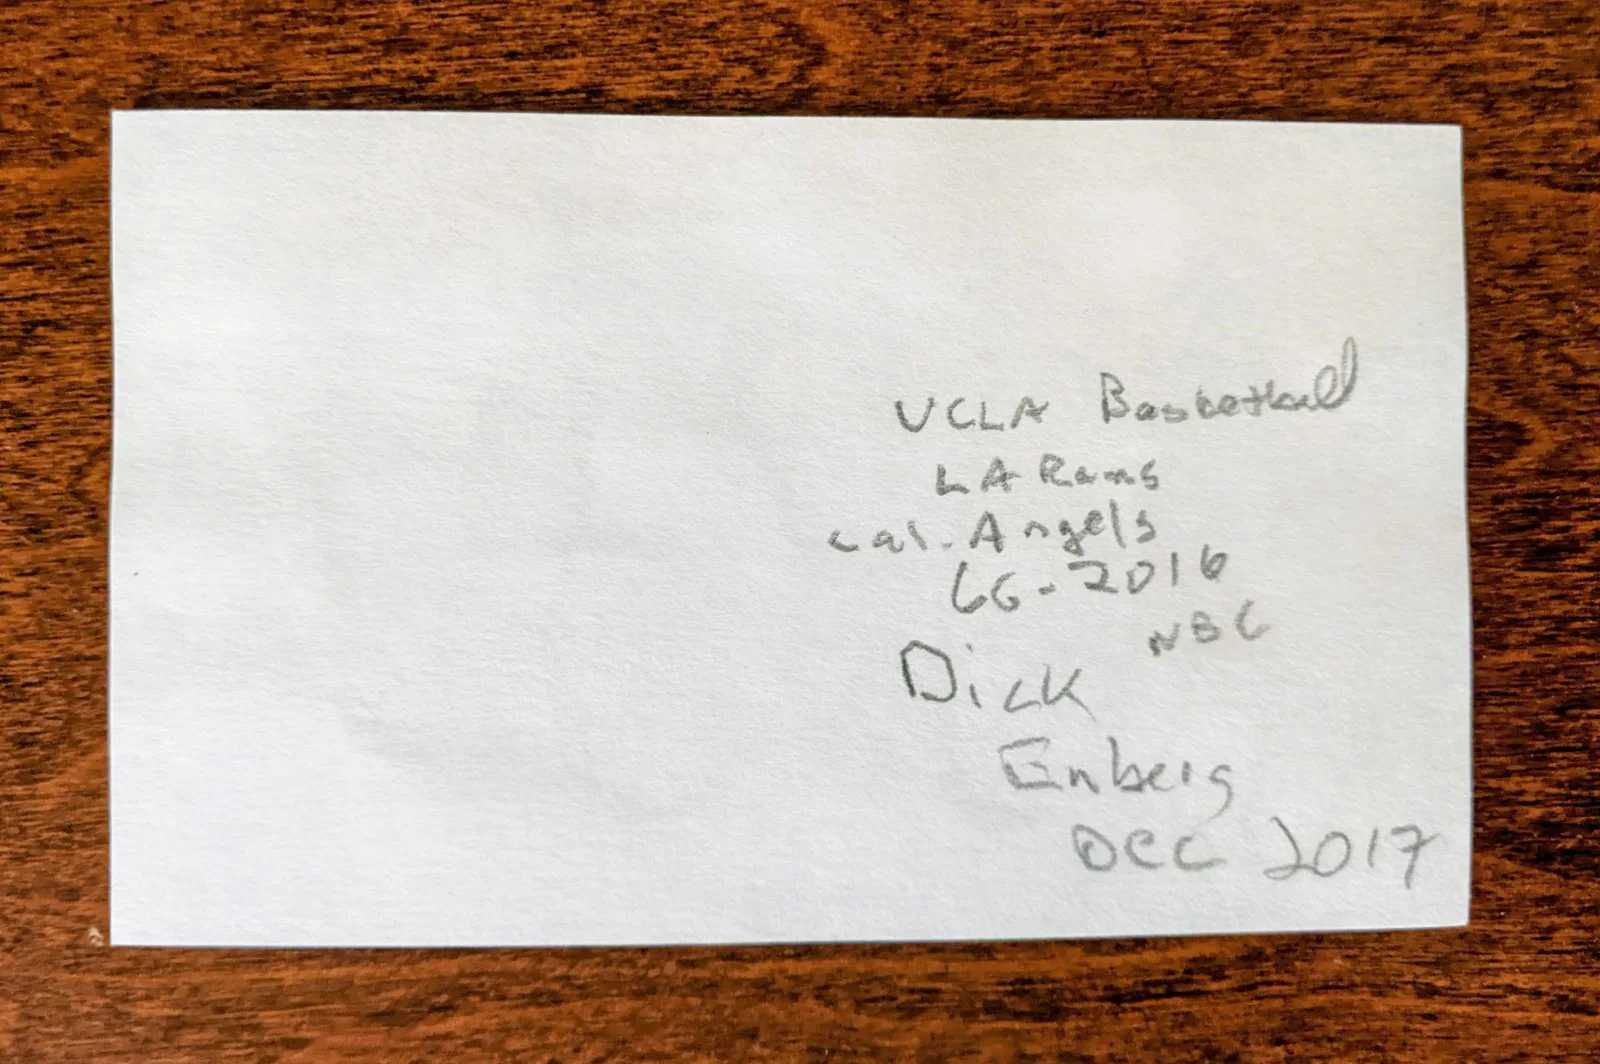 UCLA Basketball
LA Rams
Cal. Angels
66-2016
NBC
Dick
Enberg
DEC 2017